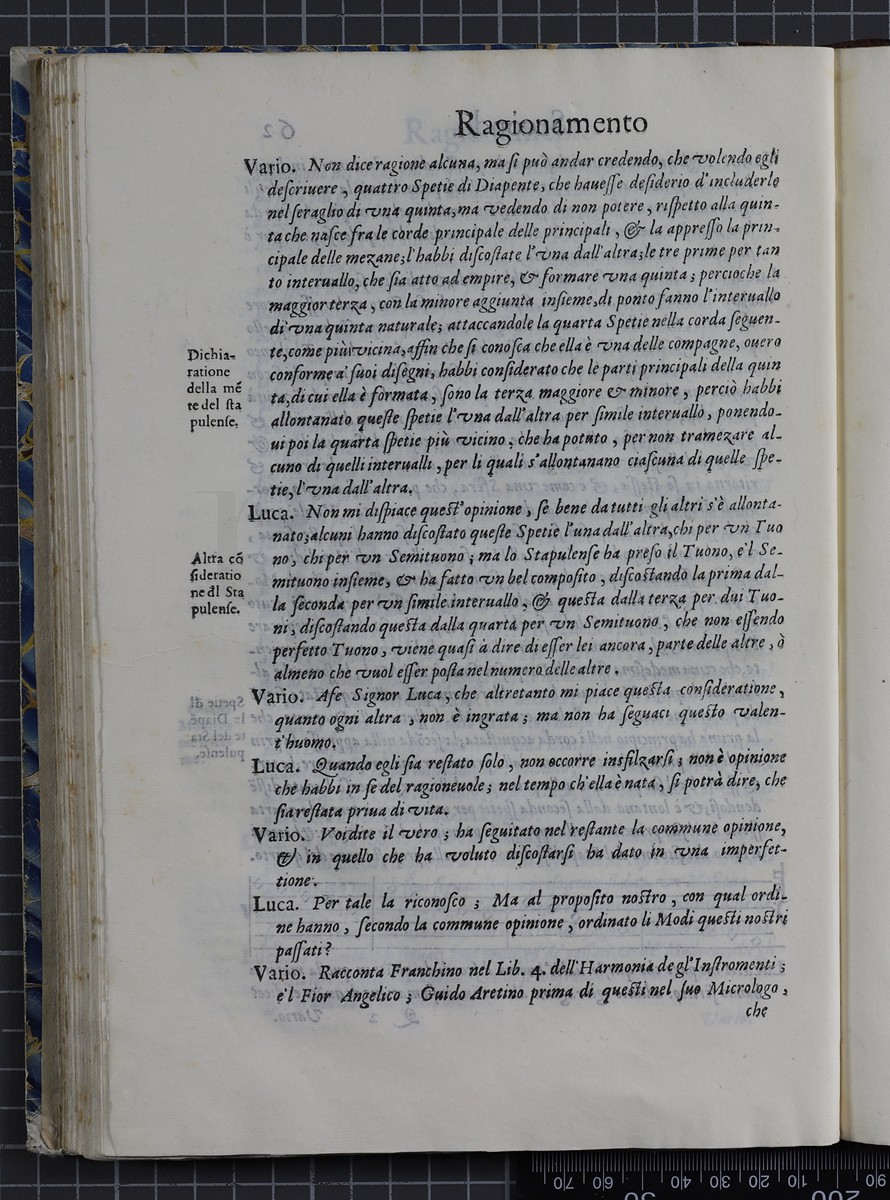 Ragionamento
Vario. Non dice ragione alcuna, ma ſi può andar credendo, che volendo egli
deſcriuere, quattro Spetie di Diapente, che haueſſe deſiderio d'includerle
nel ſeraglio di vna quinta, ma vedendo di non potere, riſpetto alla quin-
ta che naſce fra le corde principale delle principali, & la appreſſo la prin-
cipale delle mezane; l'habbi diſcoſtate l'vna dall'altra; le tre prime per tan
to interuallo, che ſia atto ad empire, & formare vna quinta; percioche la
maggior terza, con la minore aggiunta inſieme, di ponto fanno l'interuallo
di vna quinta naturale; attaccandole la quarta Spetie nella corda ſeguen-
te, come più vicina, affin che ſi conoſca che ella è vna delle compagne, ouero
conforme a' ſuoi diſegni, habbi conſiderato che le parti principali della quin
ta, di cui ella è formata, ſono la terza maggiore & minore, perciò habbi
allontanato queſte ſpetie l'vna dall'altra per ſimile interuallo, ponendo-
ui poi la quarta ſpetie più vicino, che ha potuto, per non tramezare al-
cuno di quelli interualli, per li quali s'allontanano ciaſcuna di quelle ſpe-
tie, l'vna dall'altra.
Dichia-
ratione
della mẽ
te del ſta
pulenſe.
Luca. Non mi diſpiace queſt'opinione, ſe bene da tutti gli altri s'è allonta-
nato; alcuni hanno diſcoſtato queſte Spetie l'una dall'altra, chi per vn Tuo
no, chi per vn Semituono; ma lo Stapulenſe ha preſo il Tuono, e'l Se-
mituono inſieme, & ha fatto vn bel compoſito, diſcoſtando la prima dal-
la ſeconda per vn ſimile interuallo, & queſta dalla terza per dui Tuo-
ni, diſcoſtando queſta dalla quarta per vn Semituono, che non eſſendo
perfetto Tuono, viene quaſi à dire di eſſer lei ancora, parte delle altre, ò
almeno che vuol eſſer poſta nel numero delle altre.
Altra cõ
ſideratio
ne đl Sta
pulenſe.
Vario. Afe Signor Luca, che altretanto mi piace queſta conſideratione,
quanto ogni altra, non è ingrata; ma non ha ſeguaci queſto valen-
t'huomo.
Luca. Quando egli ſia reſtato ſolo, non occorre inſfilzarſi; non è opinione
che habbi in ſe del ragioneuole; nel tempo ch'ella è nata, ſi potrà dire, che
ſia reſtata priua di vita.
Vario. Voi dite il vero; ha ſeguitato nel reſtante la commune opinione,
& in quello che ha voluto diſcoſtarſi ha dato in vna imperfet-
tione.
Luca. Per tale la riconoſco; Ma al propoſito noſtro, con qual ordi-
ne hanno, ſecondo la commune opinione, ordinato li Modi queſti noſtri
paſſati?
Vario. Racconta Franchino nel Lib. 4. dell'Harmonia degl'Inſtromenti;
e'l Fior Angelico; Guido Aretino prima di queſti nel ſuo Micrologo,
che